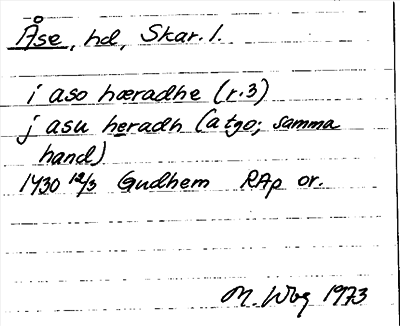 Åse, hd, Skar. l.
i aso hæradhe (r. 3)
j asu heradh (a tgo; samma
hand)
1430 12/3 Gudhem RAp or.
M. Wbg 1973